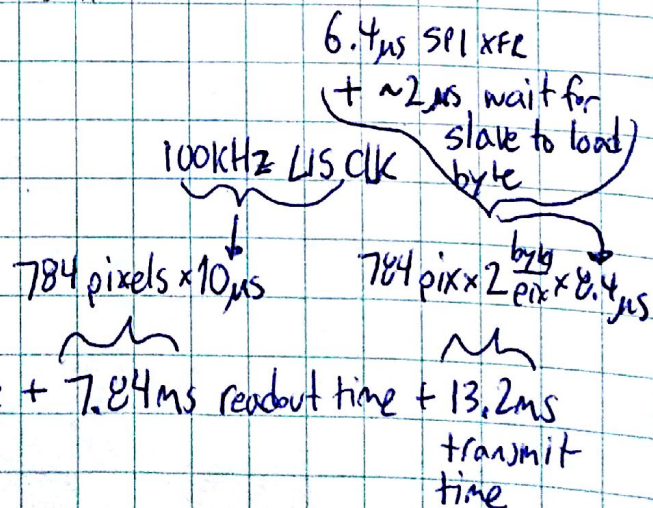 6.4µs SPI XFR
+ ~2µs wait for
slave to load
byte
100KHz LIS Clk
784 pixels × 10µs
784 pix × 2 byte/pix × 8.4µs
+ 7.84ms readout time + 13.2ms
transmit
time